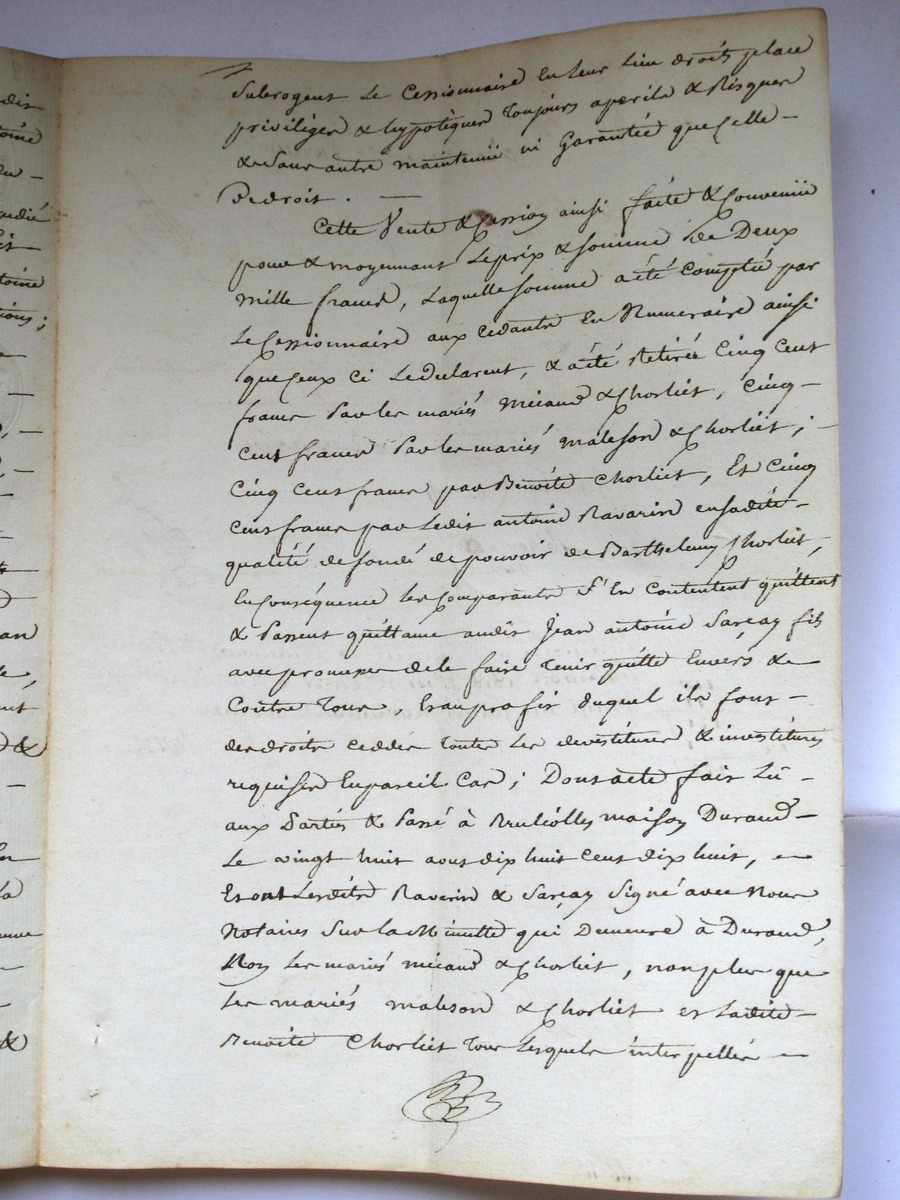 Subrogent Le Cessionnaire En Leur Lieu droits place
priviléges & hypotèques toujours aperils & Risques
& sans autre maintenüe ni Garantée que Celle -
De droit. -
Cette Vente & Cession ainsi faite & Convenüe
pour & moyennant Le prix & somme de Deux
mille francs, Laquelle somme a été Comptée par
Le Cessionnaire aux cedants En Numeraire ainsi
que Ceux Ci Le declarent, & a été Retirée Cinq Cent
francs Par Les mariés méiand & Chorliet, Cinq -
Cent francs Par Les mariés maleson & Chorliet, -
Cinq Cent francs par Benoite Chorliet, Et Cinq
Cent francs par Ledit antoine Ravarin en sadite -
qualité de fondé de pouvoir de Barthelemy Chorliet,
En Conséquence Les Comparants S'En Contentent quittent
& Passent quittance audit Jean antoine Sarcay fils
avec promesse de le faire tenir quitte Envers &
Contre tous, Et au profit duquel ils font -
des droits Ceddés toutes Les devestitures & investitures
requises En pareil Cas; Dont acte fait Lû -
aux Parties & Passé à Brulioles maison Durand -
Le vingt huit aout dix huit cent dix huit, -
Et ont Lesdits Ravarin & Sarcay Signé avec Nous
Notaires Sur la Minutte qui Demeure à Durand,
Non Les mariés méiand & Chorliet, non plus que
Les mariés maleson & Chorliet et Ladite -
Benoite Chorliet tous Lesquels interpellés -